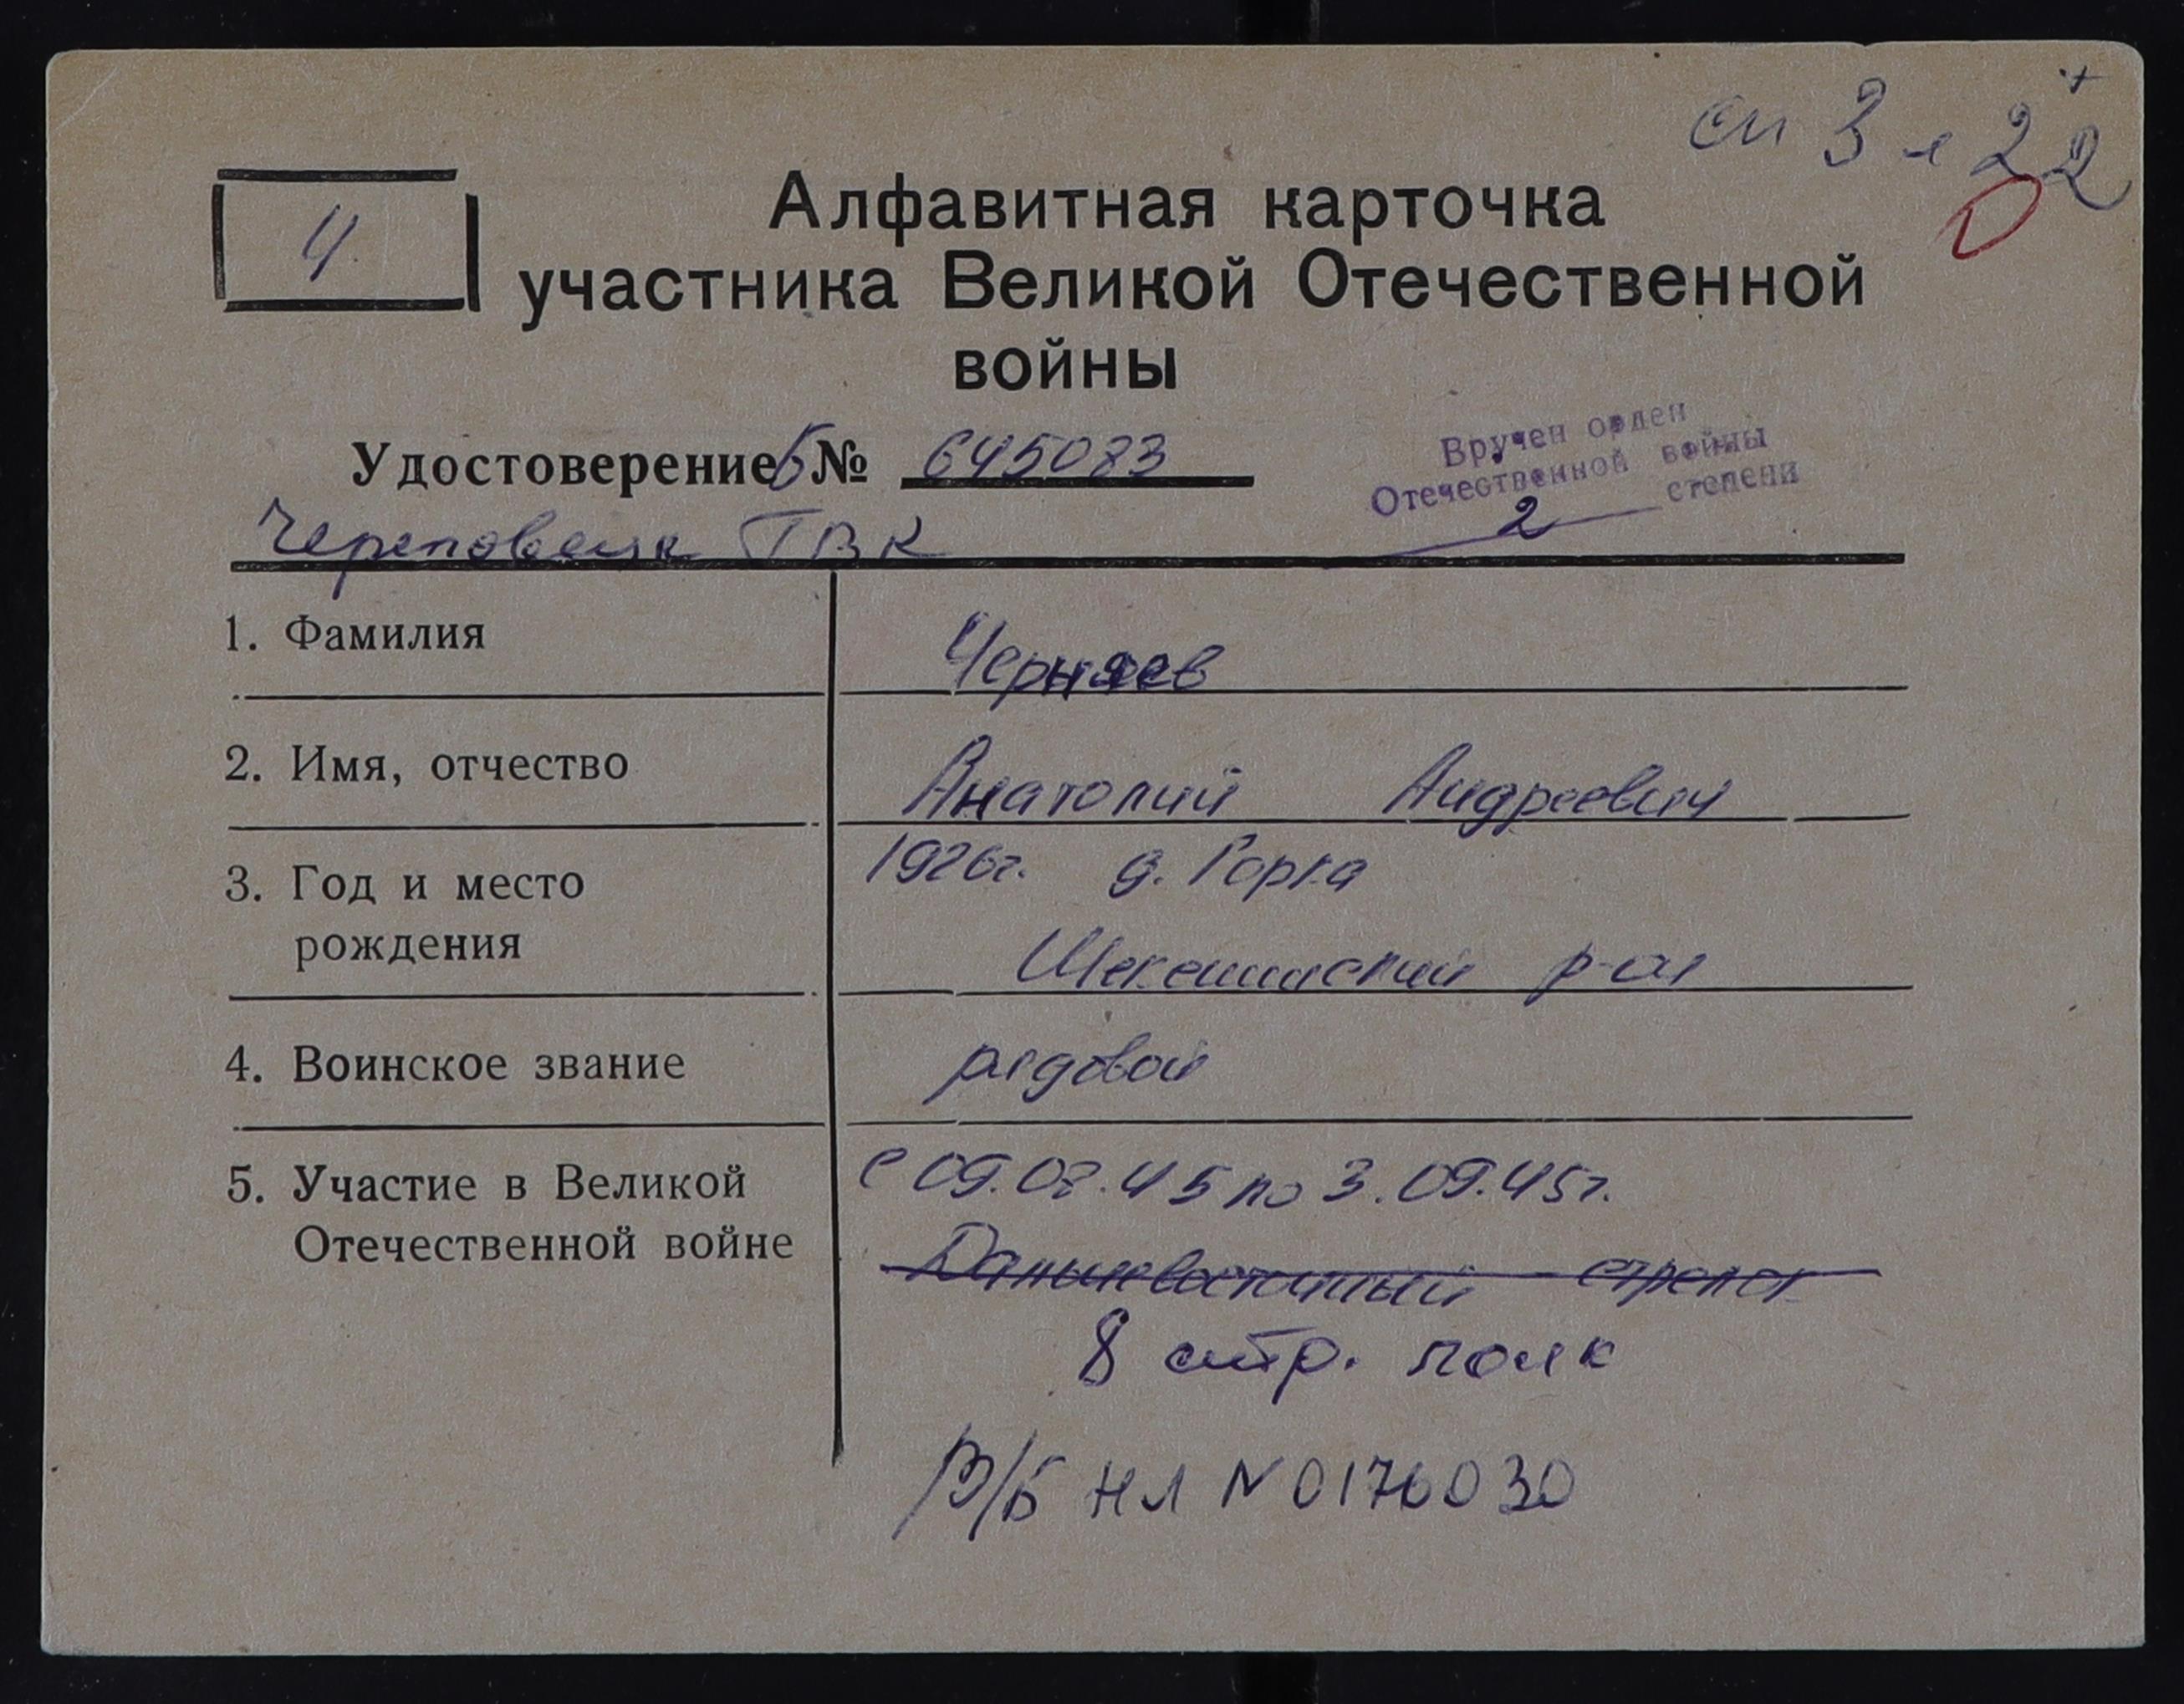 сп 3 л 22
Ч.
Алфавитная карточка
участника Великой Отечественной
войны
Удостоверение Б № 645083
Вручен орден
Отечественной войны
2 степени
Череповецк ГВК
1. Фамилия Черняев
2. Имя, отчество Анатолий Андреевич
3. Год и место 1926г. д. Горка
рождения Шекснинский р-он
4. Воинское звание рядовой
5. Участие в Великой с 09.08.45 по 3.09.45г.
Отечественной войне Дальневосточный
8 стр. полк
В/б НЛ N 0176030